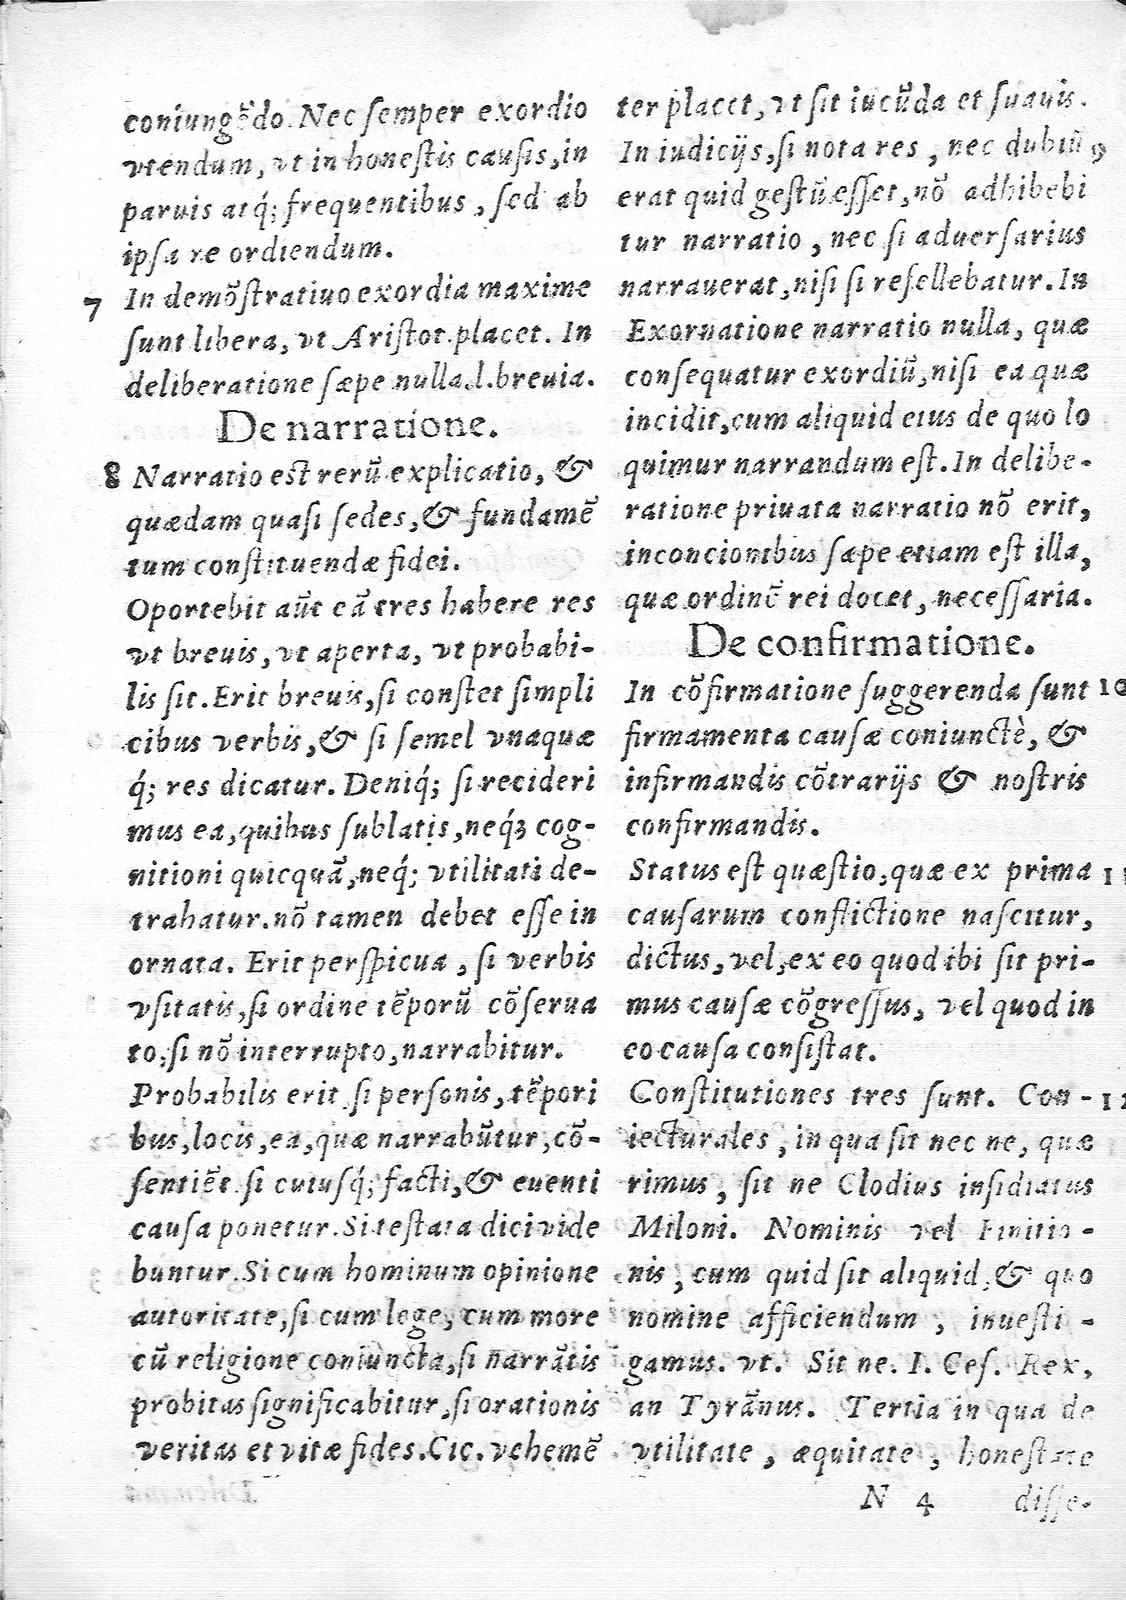 coniungẽdo. Nec ſemper exordio
vtendum, vt in honeſtis cauſis, in
paruis atq́; frequentibus, ſed ab
ipſa re ordiendum.
7 In demõſtratiuo exordia maxime
ſunt libera, vt Ariſtot. placet. In
deliberatione ſæpe nulla. l. breuia.
De narratione.
8 Narratio eſt rerũ explicatio, &
quædam quaſi ſedes, & fundamẽ
tum conſtituendæ fidei.
Oportebit aũt eã tres habere res
vt breuis, vt aperta, vt probabi-
lis ſit. Erit breuis, ſi conſtet ſimpli
cibus verbis, & ſi ſemel vnaquæ
q́; res dicatur. Deniq́; ſi recideri
mus ea, quibus ſublatis, neq́; cog-
nitioni quicquã, neq́; vtilitati de-
trahatur. nõ tamen debet eſſe in
ornata. Erit perſpicua, ſi verbis
vſitatis, ſi ordine tẽporũ cõſerua
to, ſi nõ interrupto, narrabitur.
Probabilis erit ſi perſonis, tẽpori
bus, locis, ea, quæ narrabũtur, cõ-
ſentiẽt ſi cuiuſq́; facti, & euenti
cauſa ponetur. Si teſtata dici vide
buntur. Si cum hominum opinione
autoritate, ſi cum lege, cum more
cũ religione coniuncta, ſi narrãtis
probitas ſignificabitur, ſi orationis
veritas et vitæ fides. Cic. vehemẽ
ter placet, vt ſit iucũda et ſuauis.
In iudicijs, ſi nota res, nec dubiũ 9
erat quid geſtũ eſſet, nõ adhibebi
tur narratio, nec ſi aduerſarius
narrauerat, niſi ſi refellebatur. In
Exornatione narratio nulla, quæ
conſequatur exordiũ, niſi ea quæ
incidit, cum aliquid eius de quo lo
quimur narrandum eſt. In delibe-
ratione priuata narratio nõ erit,
in concionibus ſæpe etiam eſt illa,
quæ ordinẽ rei docet, neceſſaria.
De confirmatione.
In cõfirmatione ſuggerenda ſunt 10
firmamenta cauſæ coniunctè, &
infirmandis cõtrarijs & noſtris
confirmandis.
Status eſt quæſtio, quæ ex prima 11
cauſarum conflictione naſcitur,
dictus, vel, ex eo quod ibi ſit pri-
mus cauſæ cõgreſſus, vel quod in
eo cauſa conſiſtat.
Conſtitutiones tres ſunt. Con- 12
iecturales, in qua ſit nec ne, quæ
rimus, ſit ne Clodius inſidiatus
Miloni. Nominis vel Finitio-
nis, cum quid ſit aliquid, & quo
nomine afficiendum, inueſti-
gamus. vt. Sit ne. I. Ceſ. Rex,
an Tyrãnus. Tertia in qua de
vtilitate, æquitate, honeſtate
N 4 diſſe-